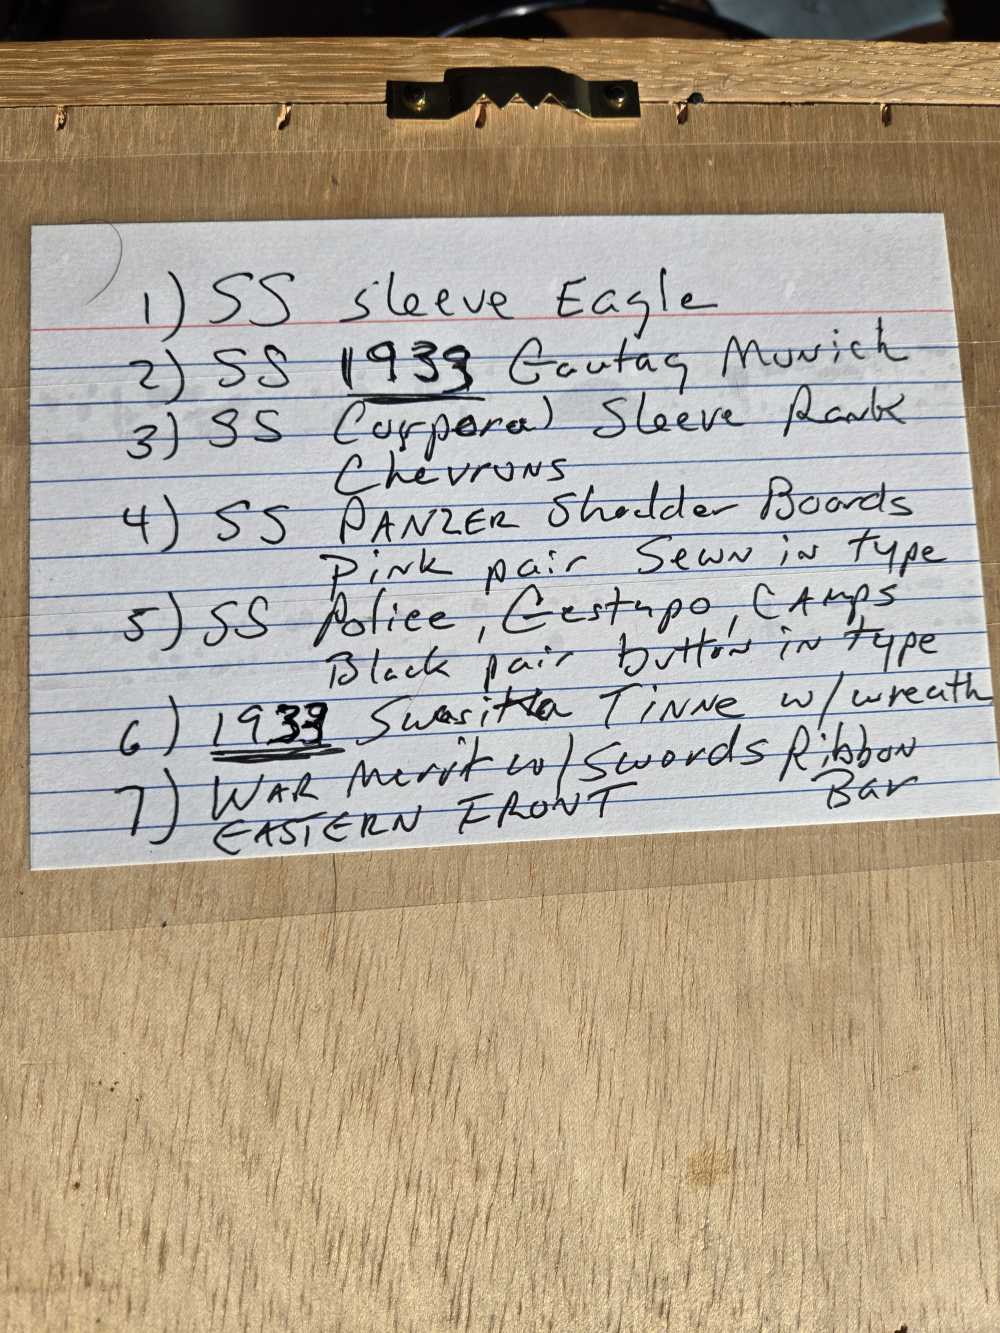 1) SS Sleeve Eagle
2) SS 1933 Gautag Munich
3) SS Corporal Sleeve Rank
Chevrons
4) SS PANZER Shoulder Boards
Pink pair Sewn in type
5) SS Police, Gestapo, CAMPS
Black pair button in type
6) 1933 Swasitka Tinne w/wreath
7) WAR Merit w/Swords Ribbon
Bar
EASTERN FRONT